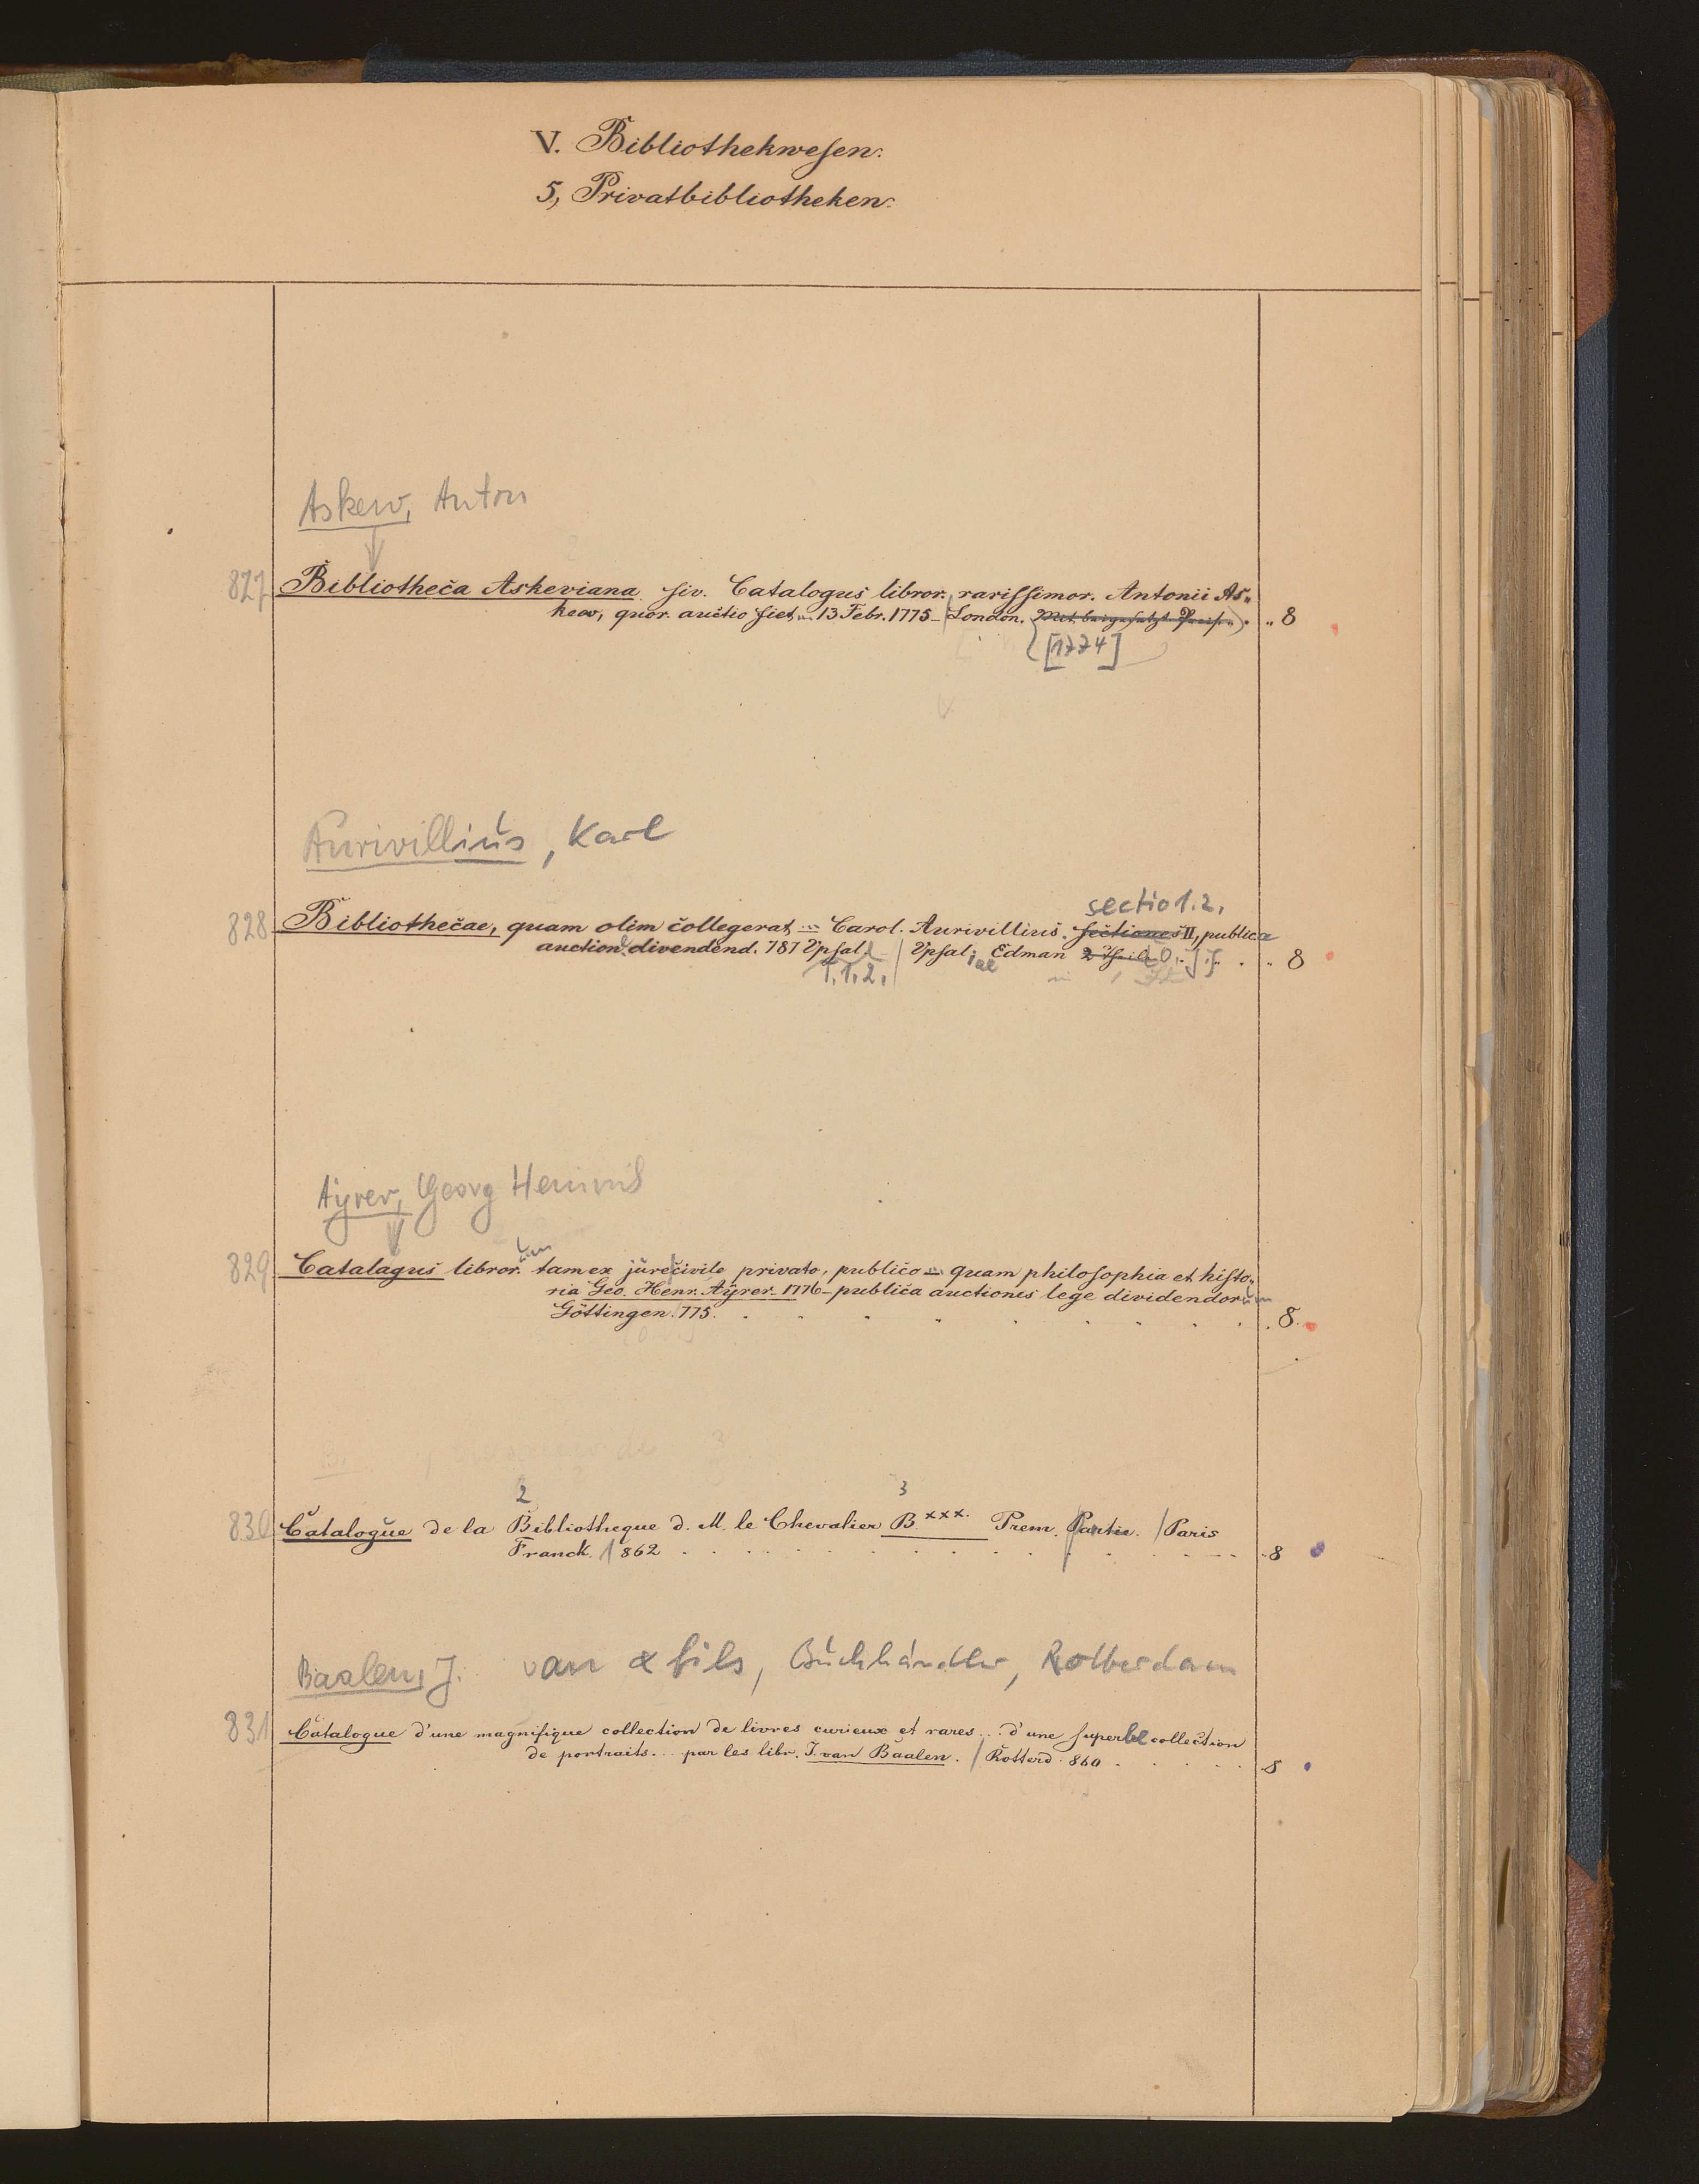 V. Bibliothekwesen.
5, Privatbibliotheken.
Askew, Anton
827 Bibliotheca Askeviana siv. Catalogus libror. rarissimor. Antonii As-
kew, quor. auctio fiet ... 13 Febr. 1775 London. Mit beigesetzt. Preisen . .. 8
[1774]
Aurivillius, Karl
sectio 1.2.
828 Bibliothecae, quam olim collegerat ... Carol. Aurivillius. sectiones II, publica
auction. divendend. 787 Upsal. / Upsal. Edman . . 8
T.1.2. iae
Ayrer, Georg Heinrich
um
829 Catalagus libror. tam ex jure civile privato, publico ... quam philosophia et histo-
ria Geo. Henr. Ayrer 1776 publica auctionis lege dividendorum
Göttingen. 775. . . . . . . . . . 8.
2 3
830 Catalogue de la Bibliotheque d. M. le Chevalier B.xxx. Prem. Partie. / Paris
Franck. / 862 . . . . . . . . . . 8
Baalen, J. van & fils, Buchhändler, Rotterdam
831 Catalogue d'une magnifique collection de livres curieux et rares ... d'une superbe collection
de portraits ... par les libr. J. van Baalen. / Rotterd. 860 . . . . . 8